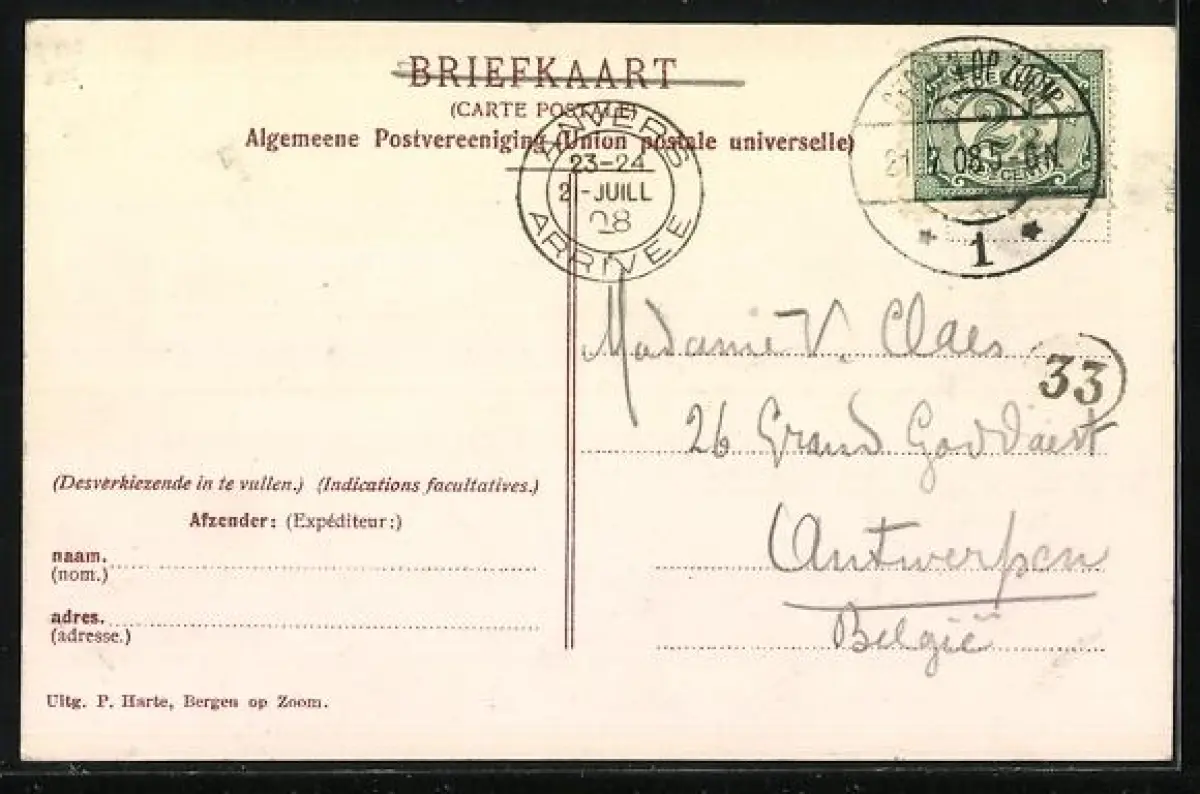 BRIEFKAART
(CARTE POSTALE)
Algemeene Postvereeniging (Union postale universelle)
ANVERS
23-24
21-JUILL
08
ARRIVEE
BERGEN OP ZOOM
2½
CENT
21.7.08.5-6N
1
Madame V. Claes
33
26 Grand Goddaert
Antwerpen
België
(Desverkiezende in te vullen.) (Indications facultatives.)
Afzender: (Expéditeur:)
naam.
(nom.)
adres.
(adresse.)
Uitg. P. Harte, Bergen op Zoom.